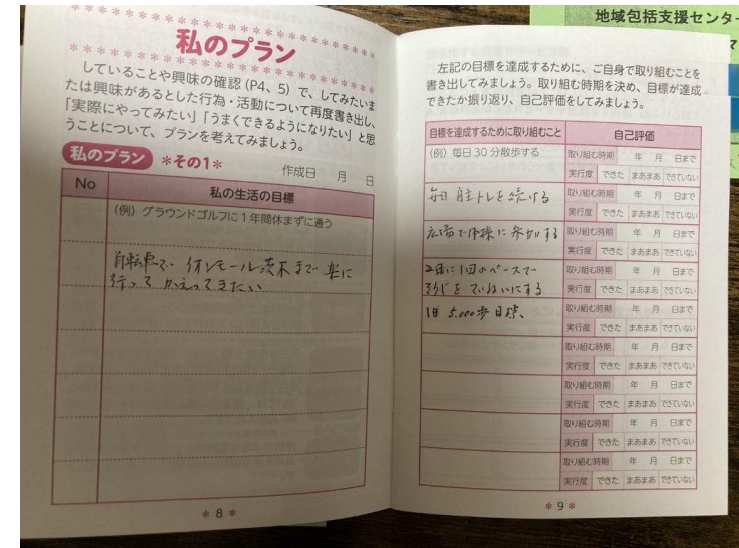 私のプラン
していることや興味の確認（P4、5）で、してみたいま
たは興味があるとした行為・活動について再度書き出し、
「実際にやってみたい」「うまくできるようになりたい」と思
うことについて、プランを考えてみましょう。
私のプラン ＊その1＊ 作成日 月 日
No 私の生活の目標
（例）グラウンドゴルフに1年間休まずに通う
自転車で イオンモール茨木まで 楽に
行って かえってきたい
＊8＊
地域包括支援センター
マ
左記の目標を達成するために、ご自身で取り組むことを
書き出してみましょう。取り組む時期を決め、目標が達成
できたか振り返り、自己評価をしてみましょう。
目標を達成するために取り組むこと 自己評価
（例）毎日30分散歩する 取り組む時期 年 月 日まで
実行度 できた まあまあ できていない
毎日 自主トレを続ける 取り組む時期 年 月 日まで
実行度 できた まあまあ できていない
広場で体操に参加する 取り組む時期 年 月 日まで
実行度 できた まあまあ できていない
2日に1回のペースで 取り組む時期 年 月 日まで
そうじを ていねいにする 実行度 できた まあまあ できていない
1日 5,000歩目標、 取り組む時期 年 月 日まで
実行度 できた まあまあ できていない
取り組む時期 年 月 日まで
実行度 できた まあまあ できていない
取り組む時期 年 月 日まで
実行度 できた まあまあ できていない
取り組む時期 年 月 日まで
実行度 できた まあまあ できていない
取り組む時期 年 月 日まで
実行度 できた まあまあ できていない
＊9＊